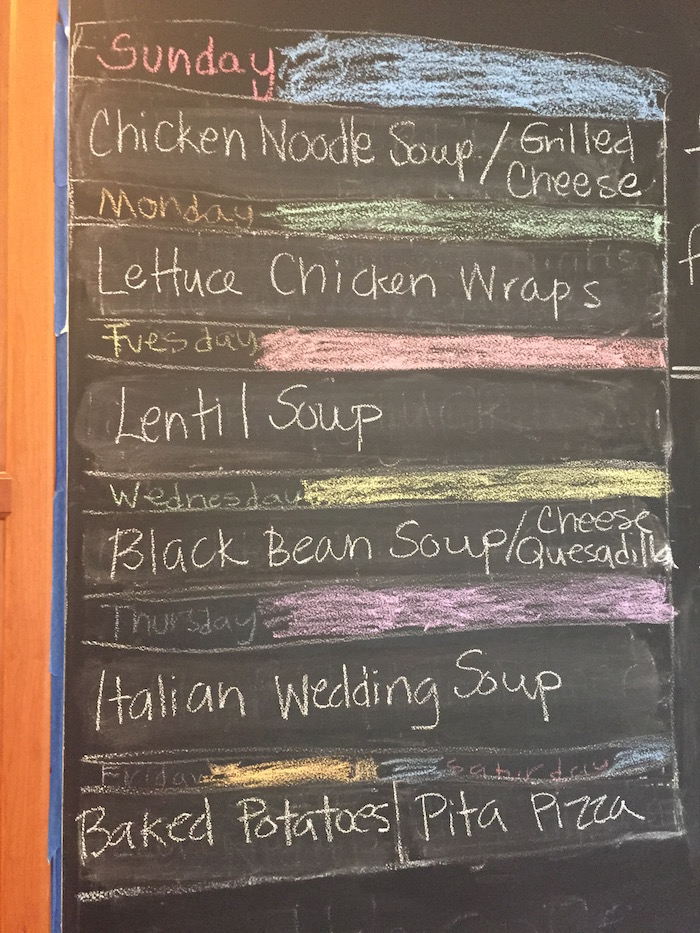 Sunday
Chicken Noodle Soup / Grilled Cheese
Monday
Lettuce Chicken Wraps
Tuesday
Lentil Soup
Wednesday
Black Bean Soup / Cheese Quesadilla
Thursday
Italian Wedding Soup
Friday Saturday
Baked Potatoes | Pita Pizza